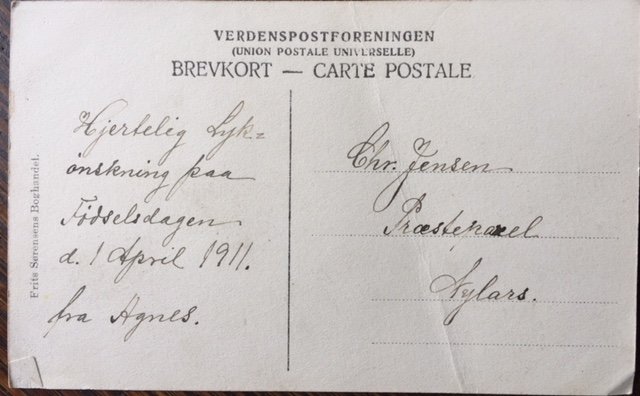 VERDENSPOSTFORENINGEN
(UNION POSTALE UNIVERSELLE)
BREVKORT — CARTE POSTALE
Hjertelig Lyk=
ønskning paa
Fødselsdagen
d. 1 April 1911.
fra Agnes.
Chr. Jensen
Nylars.
Frits Sørensens Boghandel.